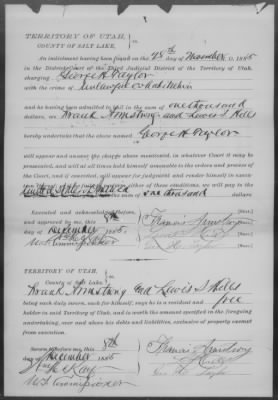 TERRITORY OF UTAH,
COUNTY OF SALT LAKE,
ss.
An indictment having been found on the 28th day of November A. D. 1885
in the District Court of the Third Judicial District of the Territory of Utah,
charging George H Taylor
with the crime of Unlawful Cohabitation
and he having been admitted to bail in the sum of one thousand
dollars, we Frank Armstrong and Lewis S Hills
hereby undertake that the above named George H Taylor
will appear and answer the charge above mentioned, in whatever Court it may be
prosecuted, and will at all times hold himself amenable to the orders and process of
the Court, and if convicted, will appear for judgment and render himself in execution
thereof; or if he fail to perform either of these conditions, we will pay to the
United States of America the sum of one thousand dollars.
Executed and acknowledged before
and approved by me, this 5th
day of December 1885.
Wm McKay
U S Commissioner
Francis Armstrong
L S Hills
Geo. H. Taylor
[SEAL]
[SEAL]
[SEAL]
TERRITORY OF UTAH,
County of Salt Lake,
ss.
Frank Armstrong and Lewis S Hills
being each duly sworn, each for himself, says he is a resident and free
holder in said Territory of Utah, and is worth the amount specified in the foregoing
undertaking, over and above his debts and liabilities, exclusive of property exempt
from execution.
Sworn before me, this 5th
day of December 1885
Wm McKay
U S Commissioner
Francis Armstrong
L S Hills
Geo. H. Taylor